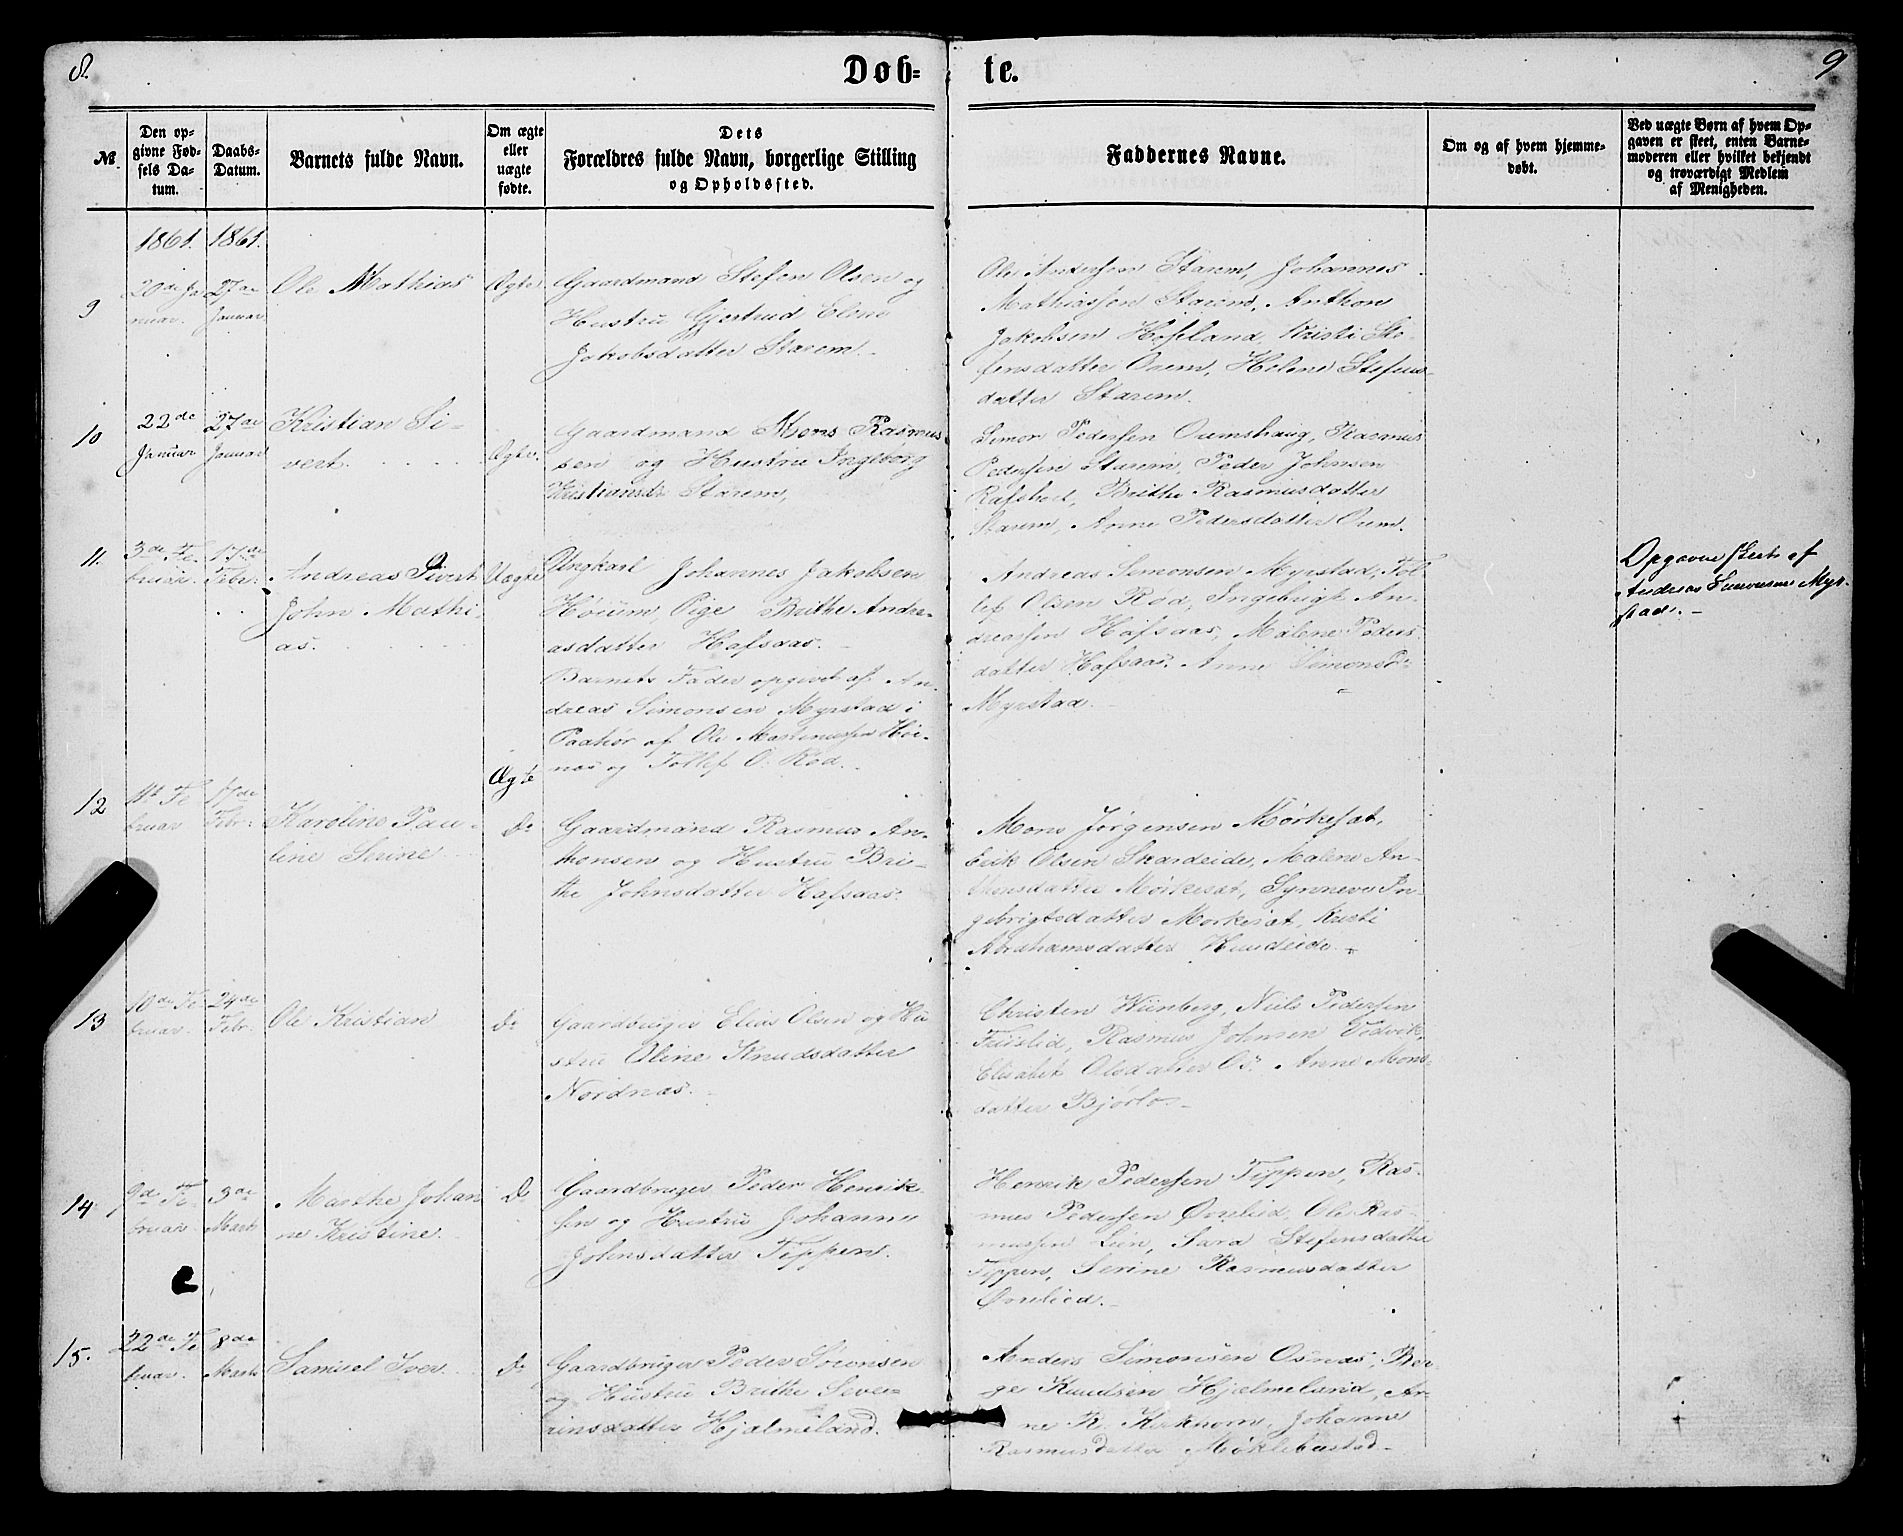 8.
Døb-
te.
9
№
Den op-
givne Fød-
sels Da-
tum.
Daabs-
Datum.
Barnets fulde Navn.
Om ægte
eller
uægte
fødte.
Dets
Forældres fulde Navn, borgerlige Stilling
og Opholdssted.
Faddernes Navne.
Om og af hvem hjemme-
døbt.
Ved uægte Børn af hvem Op-
gaven er skeet, enten Barne-
moderen eller hvilket bekjendt
og troværdigt Medlem
af Menigheden.
1861.
1861.
9
20de Ja
nuar.
27de
Januar
Ole Mathias
Ægte
Gaardmand Stefen Olsen og
Hustru Gjertrud Elene
Jakobsdatter Starem.
Ole Andersen Starem, Johannes
Mathiassen Starem, Anthon
Jakobsen Hofland, Kristi Ste-
fensdatter Orem, Helene Stefens-
datter Starem.
10
22de
Januar
27de
Januar
Kristian Si-
vert.
Ægte.
Gaardmand Mons Rasmus
sen og Hustru Ingeborg
Kristiansdr Starem,
Simon Pedersen Oremshaug, Rasmus
Pedersen Starem, Peder Johnsen
Brithe Rasmusdatter
Starem, Anne Pedersdatter Orem.
11.
3de Fe-
bruar.
17de
Febr.
Andreas Sivert
John Mathi-
as.
Uægte
Ungkarl Johannes Jakobsen
Hoium, Pige Brithe Andre-
asdatter Hafsaas.
Barnets Fader opgivet af An-
dreas Simonsen Myrstad i
Paahør af Ole Martinussen Høi-
nes og Tollef O. Rød.
Andreas Simonsen Myrstad, Tol-
lef Olsen Rød, Ingebrigt An-
dreassen Hafsaas, Malene Peders
datter Hafsaas, Anne Simonsdr
Myrstad.
Opgaven skeet af
Andreas Simonsen Myr-
stad.
Ægte
12
11te Fe
bruar
17de
Febr.
Karoline Pau-
line Serine
Do
Gaardmand Rasmus An-
thonsen og Hustru Bri-
the Johnsdatter Hafsaas.
Mons Jørgensen Mørkesæt,
Erik Olsen Skardeide, Malene An-
thonsdatter Mørkesæt, Synneve In-
gebrigtsdatter Mørkesæt, Kristi
Abrahamsdatter Hundeide.
13
10de Fe
bruar.
24de
Febr.
Ole Kristian
Do
Gaardbruger Elias Olsen og Hu
stru Oline Knudsdatter
Nordnæs.
Christen Niels Pedersen
Rasmus Johnsen
Elisabet Olsdatter Os, Anne Mons-
datter Bjørlo
14
9de Fe-
bruar
3de
Marts
Marthe Johan
ne Kristine.
Do
Gaardbruger Peder Henrik-
sen og Hustru Johanne
Johnsdatter Tippen.
Henrik Pedersen Tippen, Ras-
mus Pedersen Ørelied, Ole Ras-
mussen Lien, Sara Stefensdatter
Tippen, Serine Rasmusdatter
Ørelied.
15.
22de Fe
bruar.
8de
Marts
Samuel Iver.
Do
Gaardbruger Peder Sørensen
og Hustru Brithe Seve-
rinsdatter Hjelmeland.
Anders Simonsen Osnæs, Bør-
ge Knudsen Hjelmeland, An-
ne R. Johanne
Rasmusdatter Møklebustad.